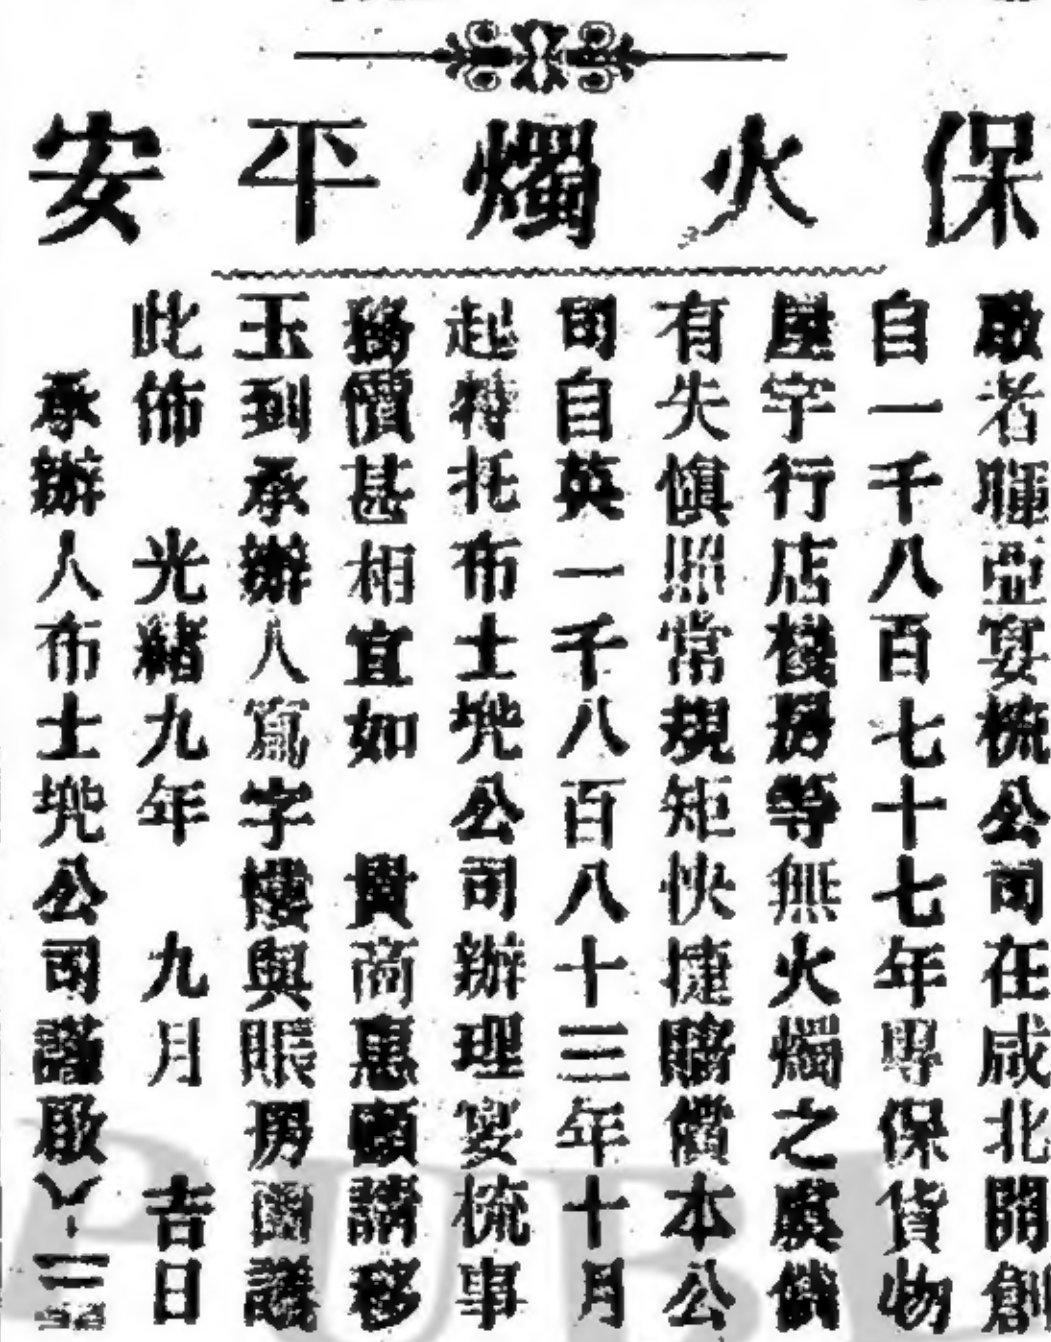 保火燭平安
啟者暉亞宴梳公司在咸北開創
自一千八百七十七年專保貨物
屋宇行店棧房等無火燭之虞倘
有失慎照常規矩快捷賠償本公
司自英一千八百八十三年十月
起特托布士兠公司辦理宴梳事
務價甚相宜如 貴商惠顧請移
玉到承辦人寫字樓與賬房面議
此佈 光緒九年 九月 吉日
承辦人布士兠公司謹啟